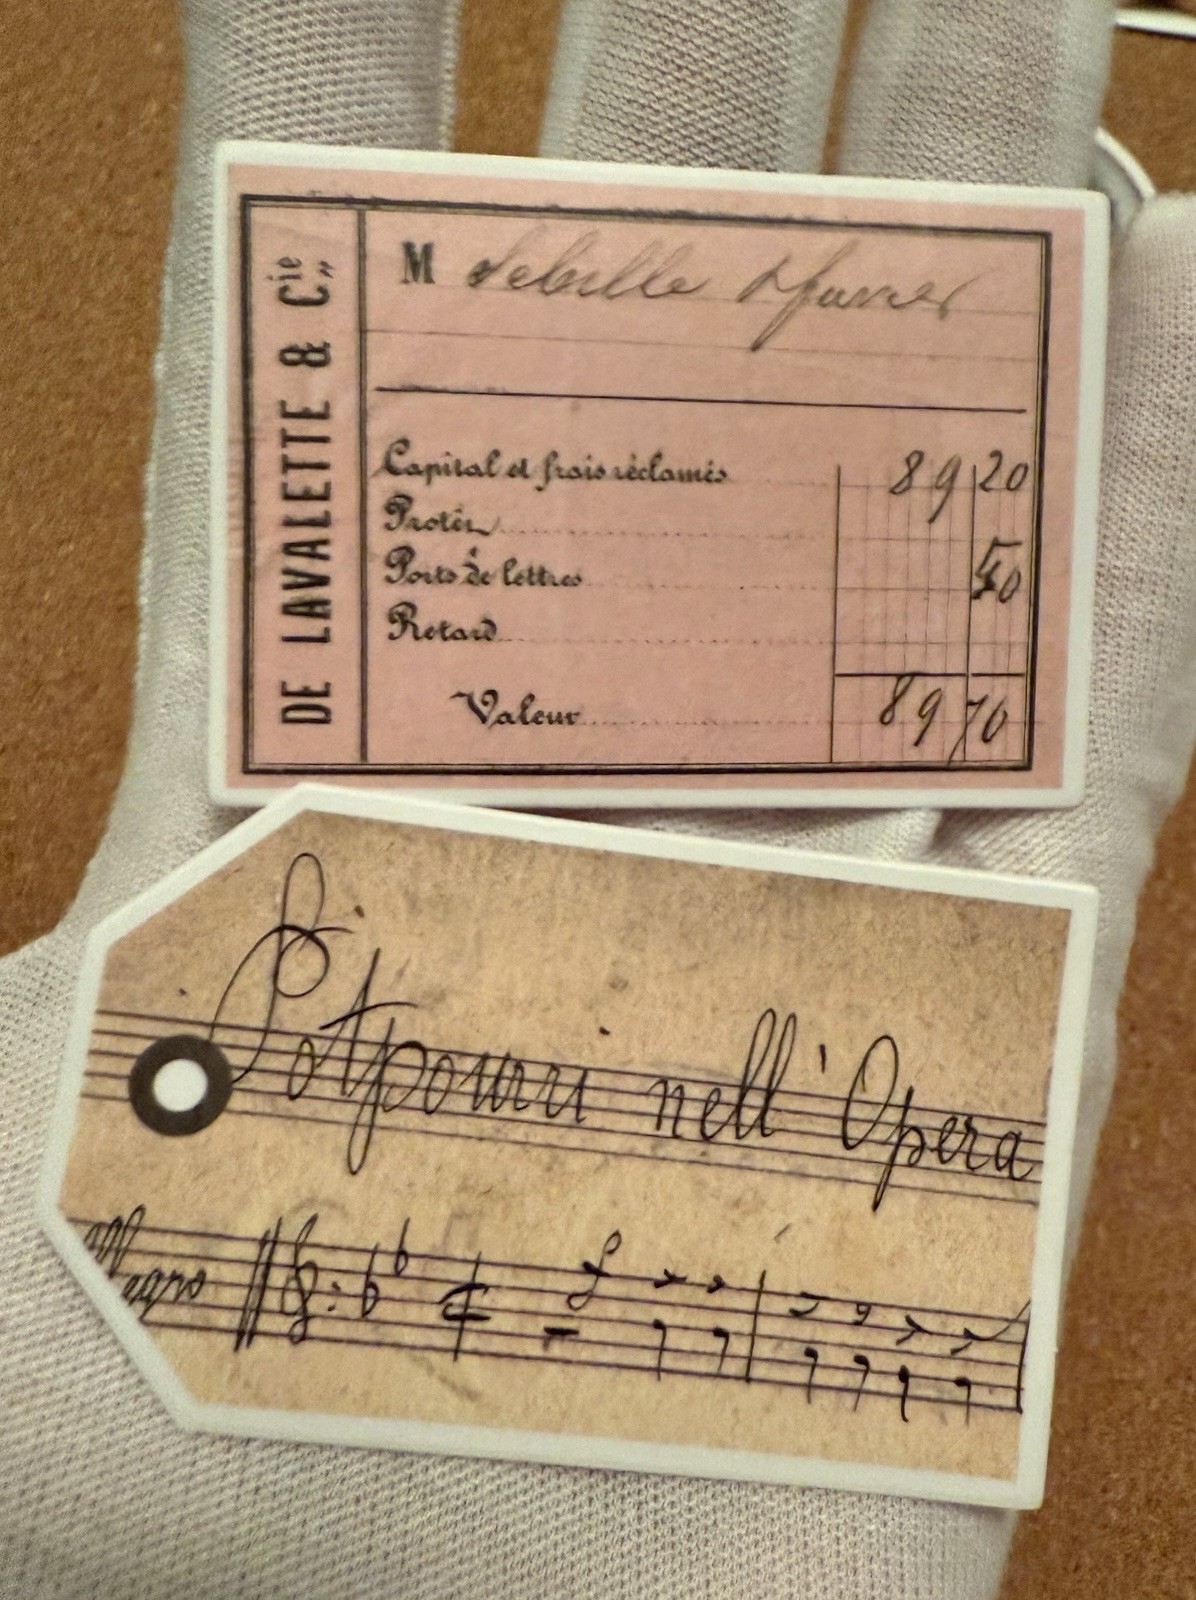 DE LAVALETTE & Cie
M
Capital et frais réclamés 89 20
Protêt
Ports de lettres 50
Retard
Valeur 89 70
Potpourri nell' Opera